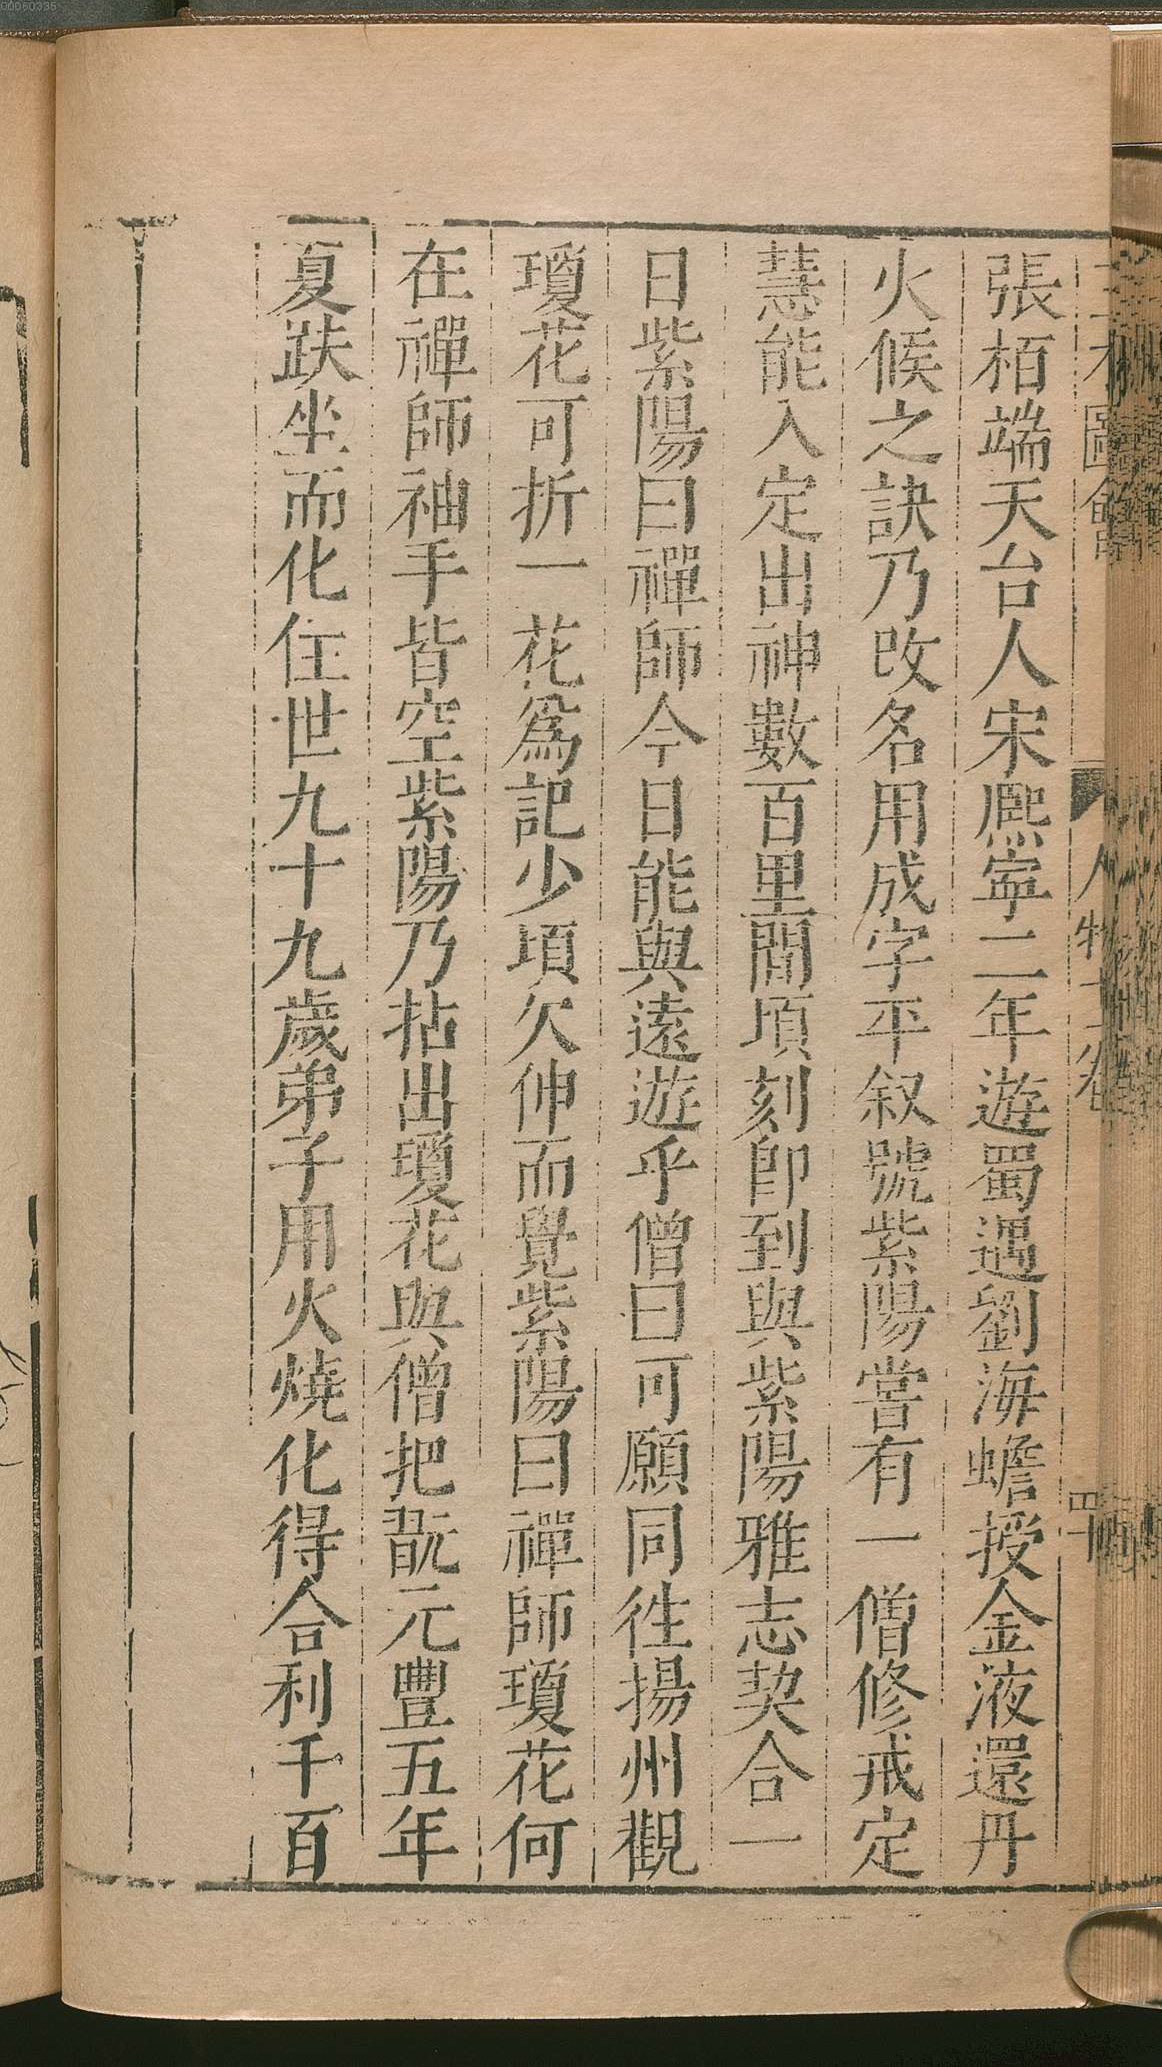 張栢端天台人宋熈寧二年遊蜀遇劉海蟾授金液還丹
火候之訣乃改名用成字平叙號紫陽嘗有一僧修戒定
慧能入定出神數百里間頃刻卽到與紫陽雅志契合一
日紫陽曰禪師今日能與遠遊乎僧曰可願同徃揚州觀
瓊花可折一花爲記少頃欠伸而覺紫陽曰禪師瓊花何
在禪師袖手皆空紫陽乃拈出瓊花與僧把翫元豐五年
夏趺坐而化住世九十九歲弟子用火燒化得合利千百
00060335